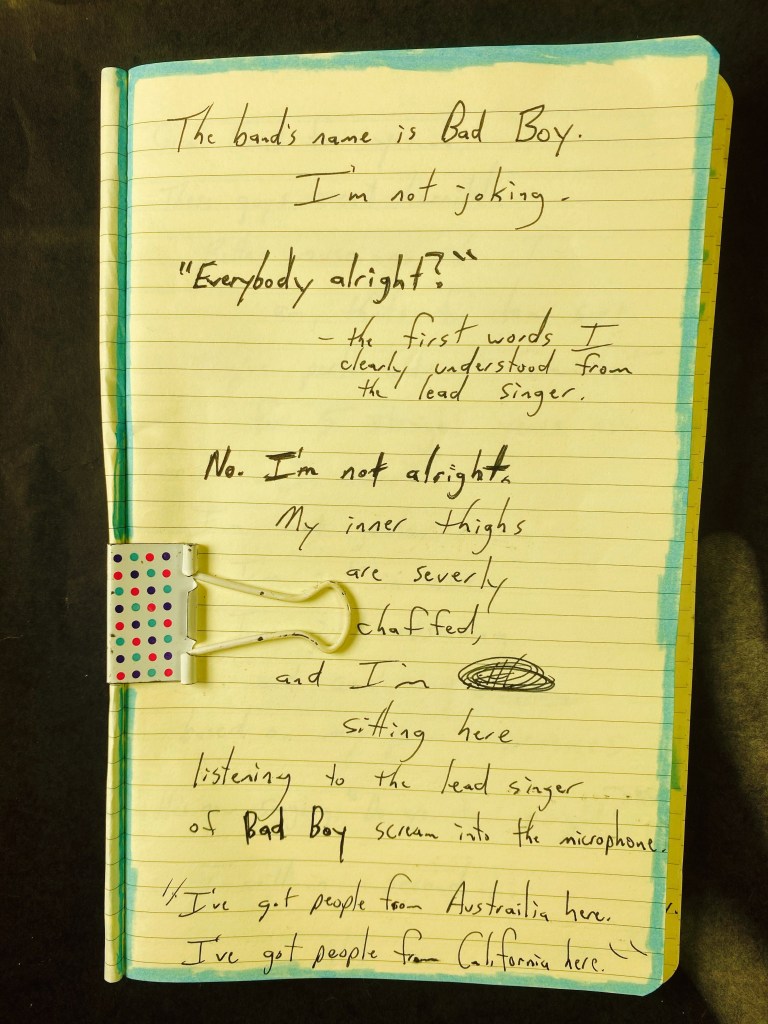 The band's name is Bad Boy.
I'm not joking.
"Everybody alright?"
- the first words I
clearly understood from
the lead singer.
No. I'm not alright.
My inner thighs
are severly
chaffed,
and I'm
sitting here
listening to the lead singer
of Bad Boy scream into the microphone.
"I've got people from Austrailia here.
I've got people from California here."